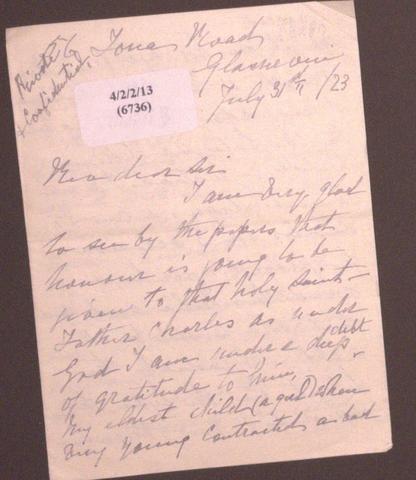 Private &
Confidential
Iona Road
Glasnevin
July 31st /23
4/2/2/13
(6736)
My dear Sir
I am very glad
to see by the papers that
honour is going to be
given to that holy saint-
Father Charles as under
God I am under a deep debt
of gratitude to him,
My eldest child (a girl) when
very young contracted a bad